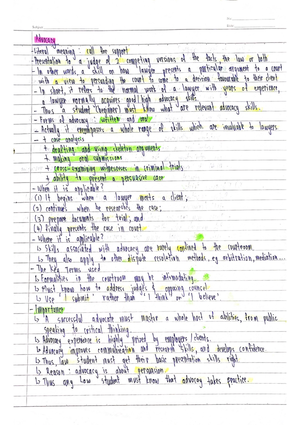 Advocacy
- Literal meaning : call for support
- Presentation to a judge of 2 competing versions of the facts, the law or both
- In other words, a skill on how lawyer presents a particular argument to a court
with a view to persuading the court to come to a decision favourable to their client
- In short, it refers to the normal work of a lawyer with years of experience,
a lawyer normally acquires good/high advocacy skill.
- Thus a student (beginner) must know what are relevant advocacy skills.
- Forms of advocacy : written and oral
- Actually it encompasses a whole range of skills which are invaluable to lawyers.
+ case analysis
+ drafting and using skeleton arguments
+ making oral submissions
+ cross-examining witnesses in criminal trials
+ ability to present a persuasive case
- When it is applicable?
(1) It begins when a lawyer meets a client;
(2) continues when he researches the case;
(3) prepare documents for trial; and
(4) Finally presents the case in court
- Where it is applicable?
↳ Skills associated with advocacy are rarely confined to the courtroom.
↳ They also apply to other dispute resolution methods, eg. arbitration, mediation...
- The Key Terms used
↳ Formalities in the courtroom may be intimidating.
↳ Must know how to address judges & opposing counsel
↳ Use 'I submit' rather than 'I think' or 'I believe'
- Importance
↳ A successful advocate must master a whole host of abilities, from public
speaking to critical thinking.
↳ Advocacy experience is highly prized by employers / clients.
↳ Advocacy improves communication and research skills, and develops confidence
↳ Thus, law student must get their basic presentation skills right
↳ Reason : advocacy is about persuasion
↳ Thus any law student must know that advocacy takes practice.